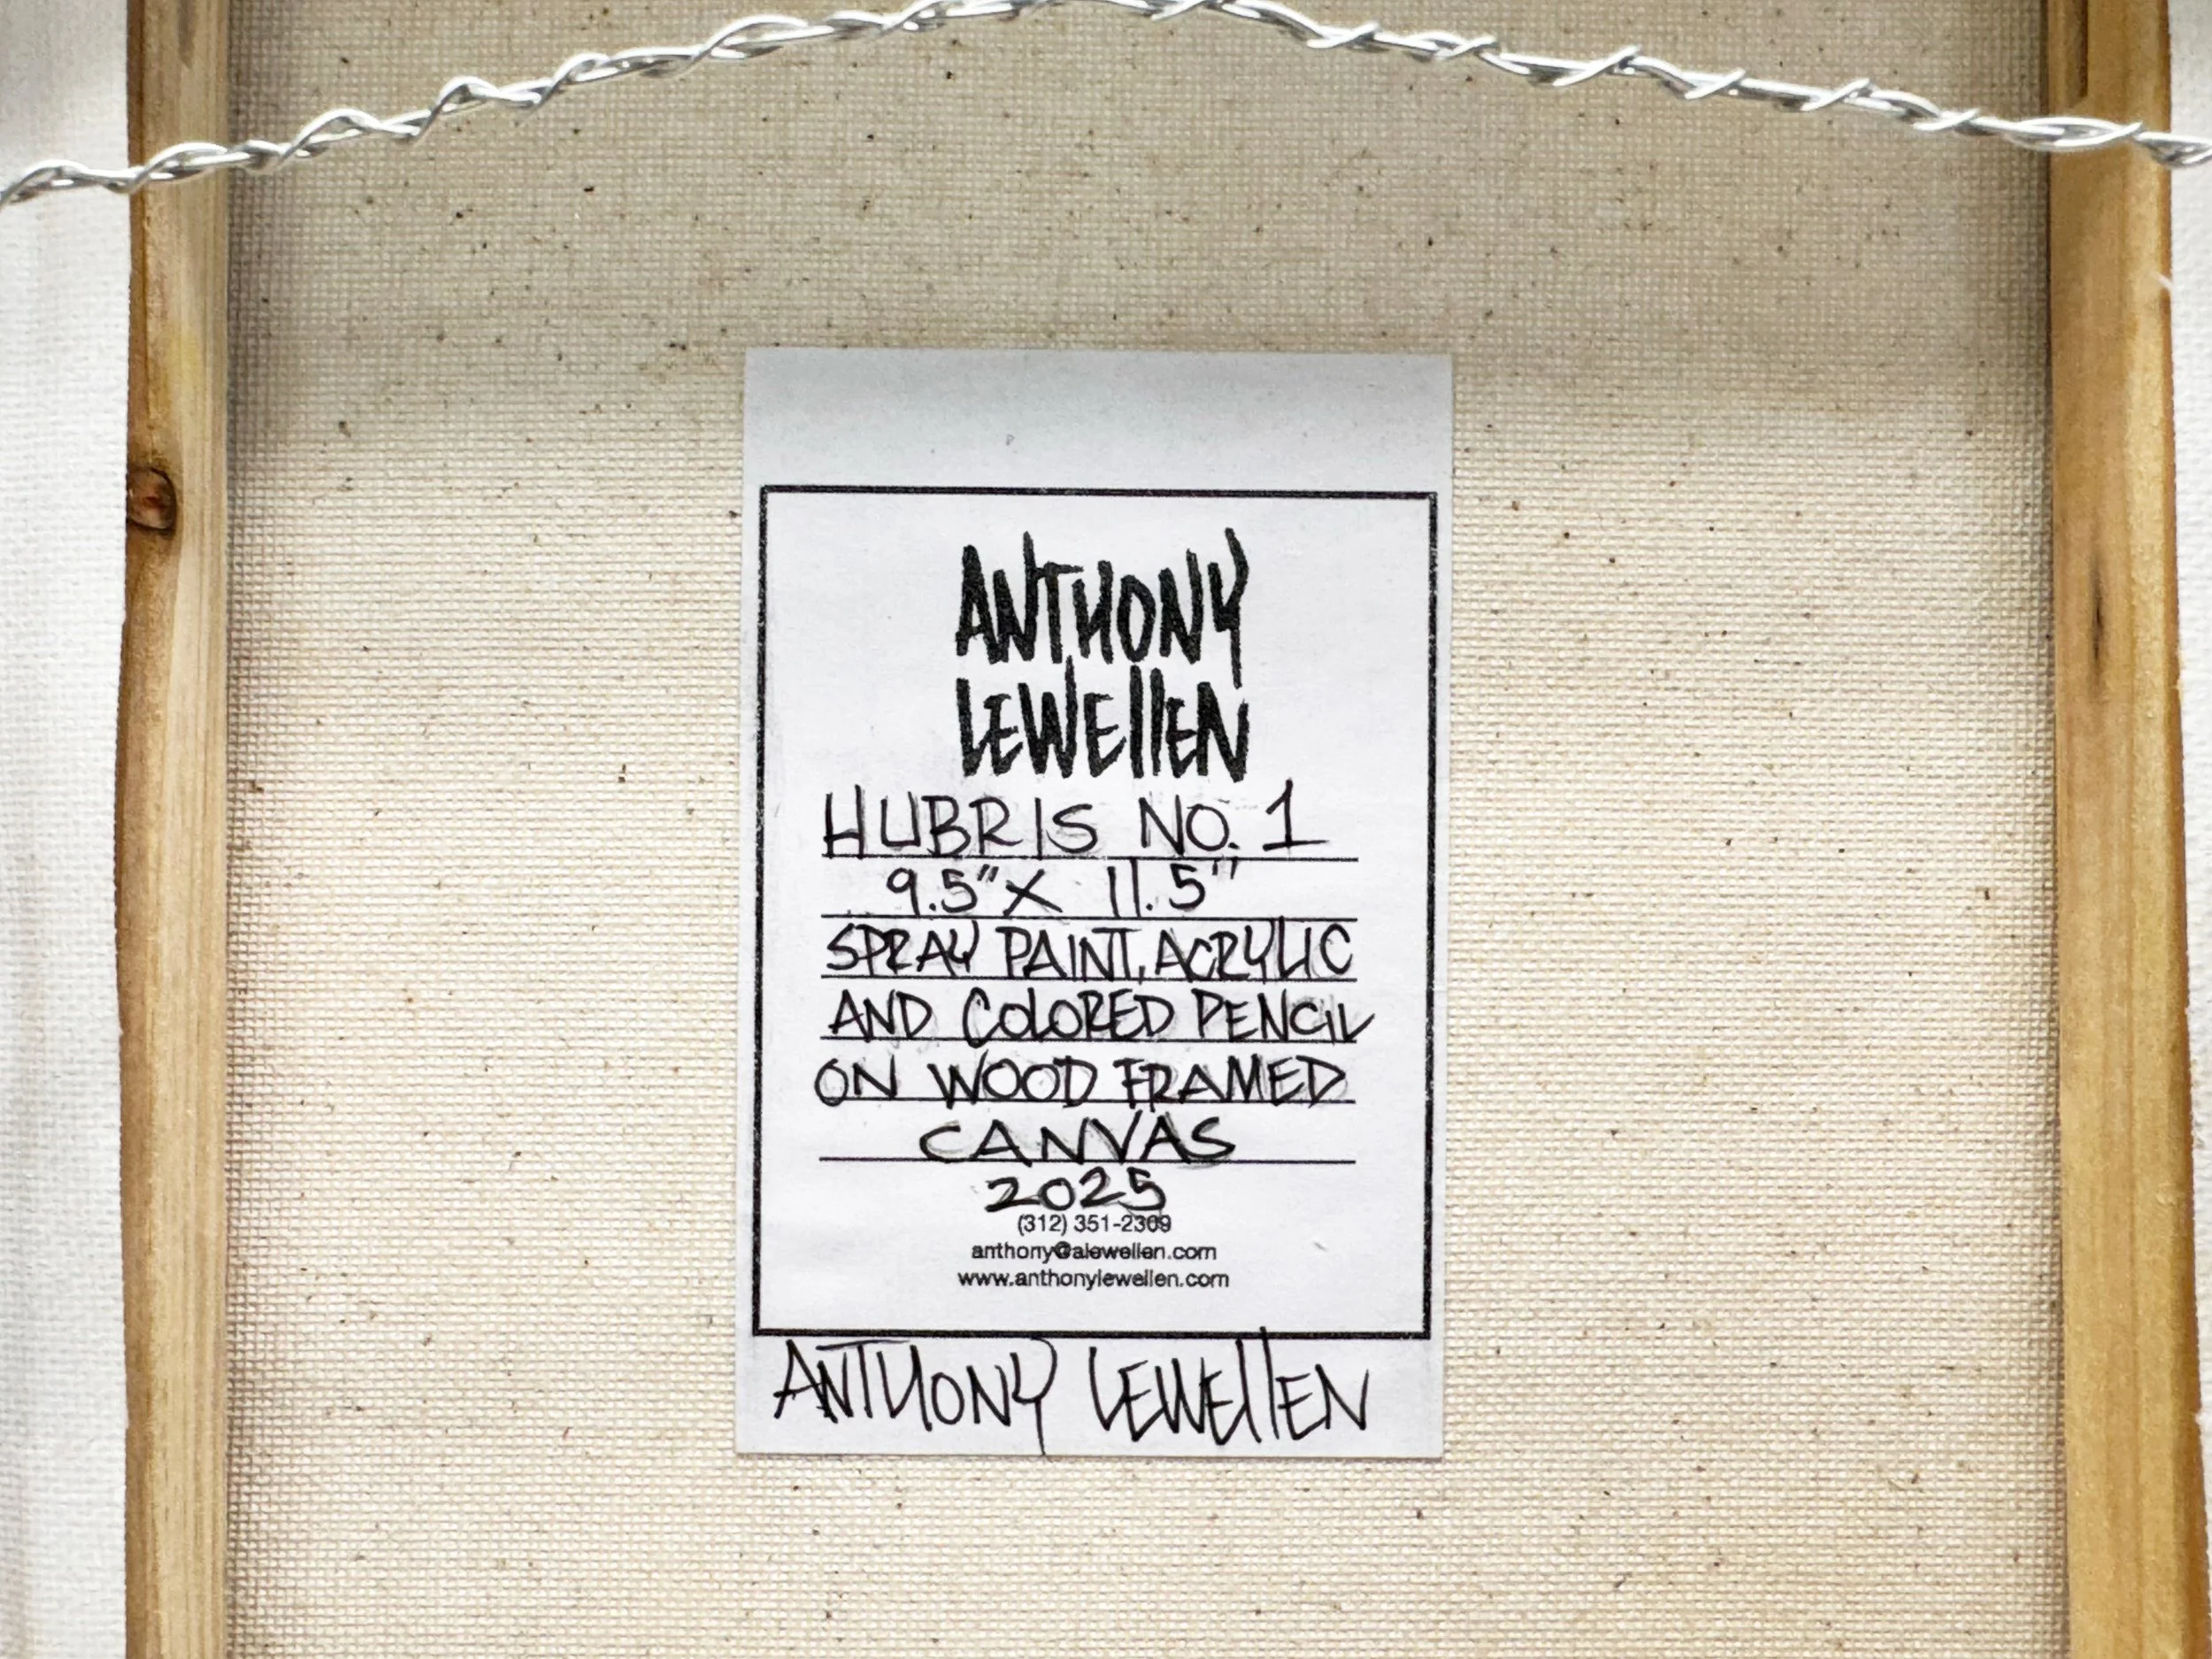 ANTHONY
LEWEllEN
HUBRIS NO. 1
9.5" X 11.5"
SPRAY PAINT, ACRYLIC
AND COLORED PENCIL
ON WOOD FRAMED
CANVAS
2025
(312) 351-2309
anthony@alewellen.com
www.anthonylewellen.com
ANTHONY LEWEllEN